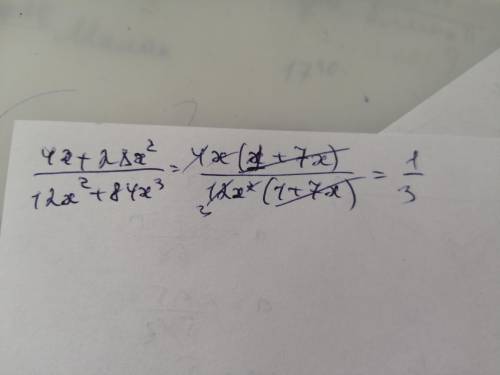 (4x + 28x²)/(12x² + 84x³) = 4x(1 + 7x)/12x²(1 + 7x) = 1/3
3